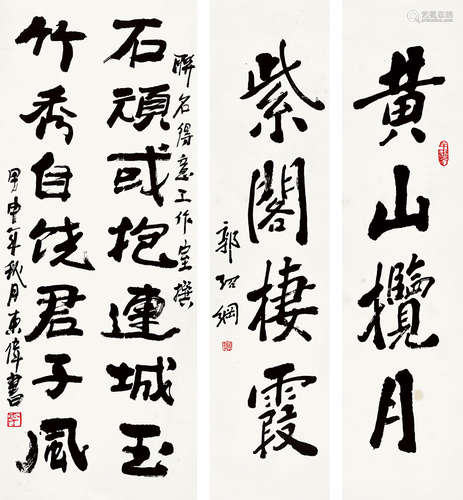 黄山攬月
紫閣棲霞
郭紹綱
聯名得意工作室撰
石頑或抱連城玉
竹秀自饶君子風
甲申年秋月東偉書